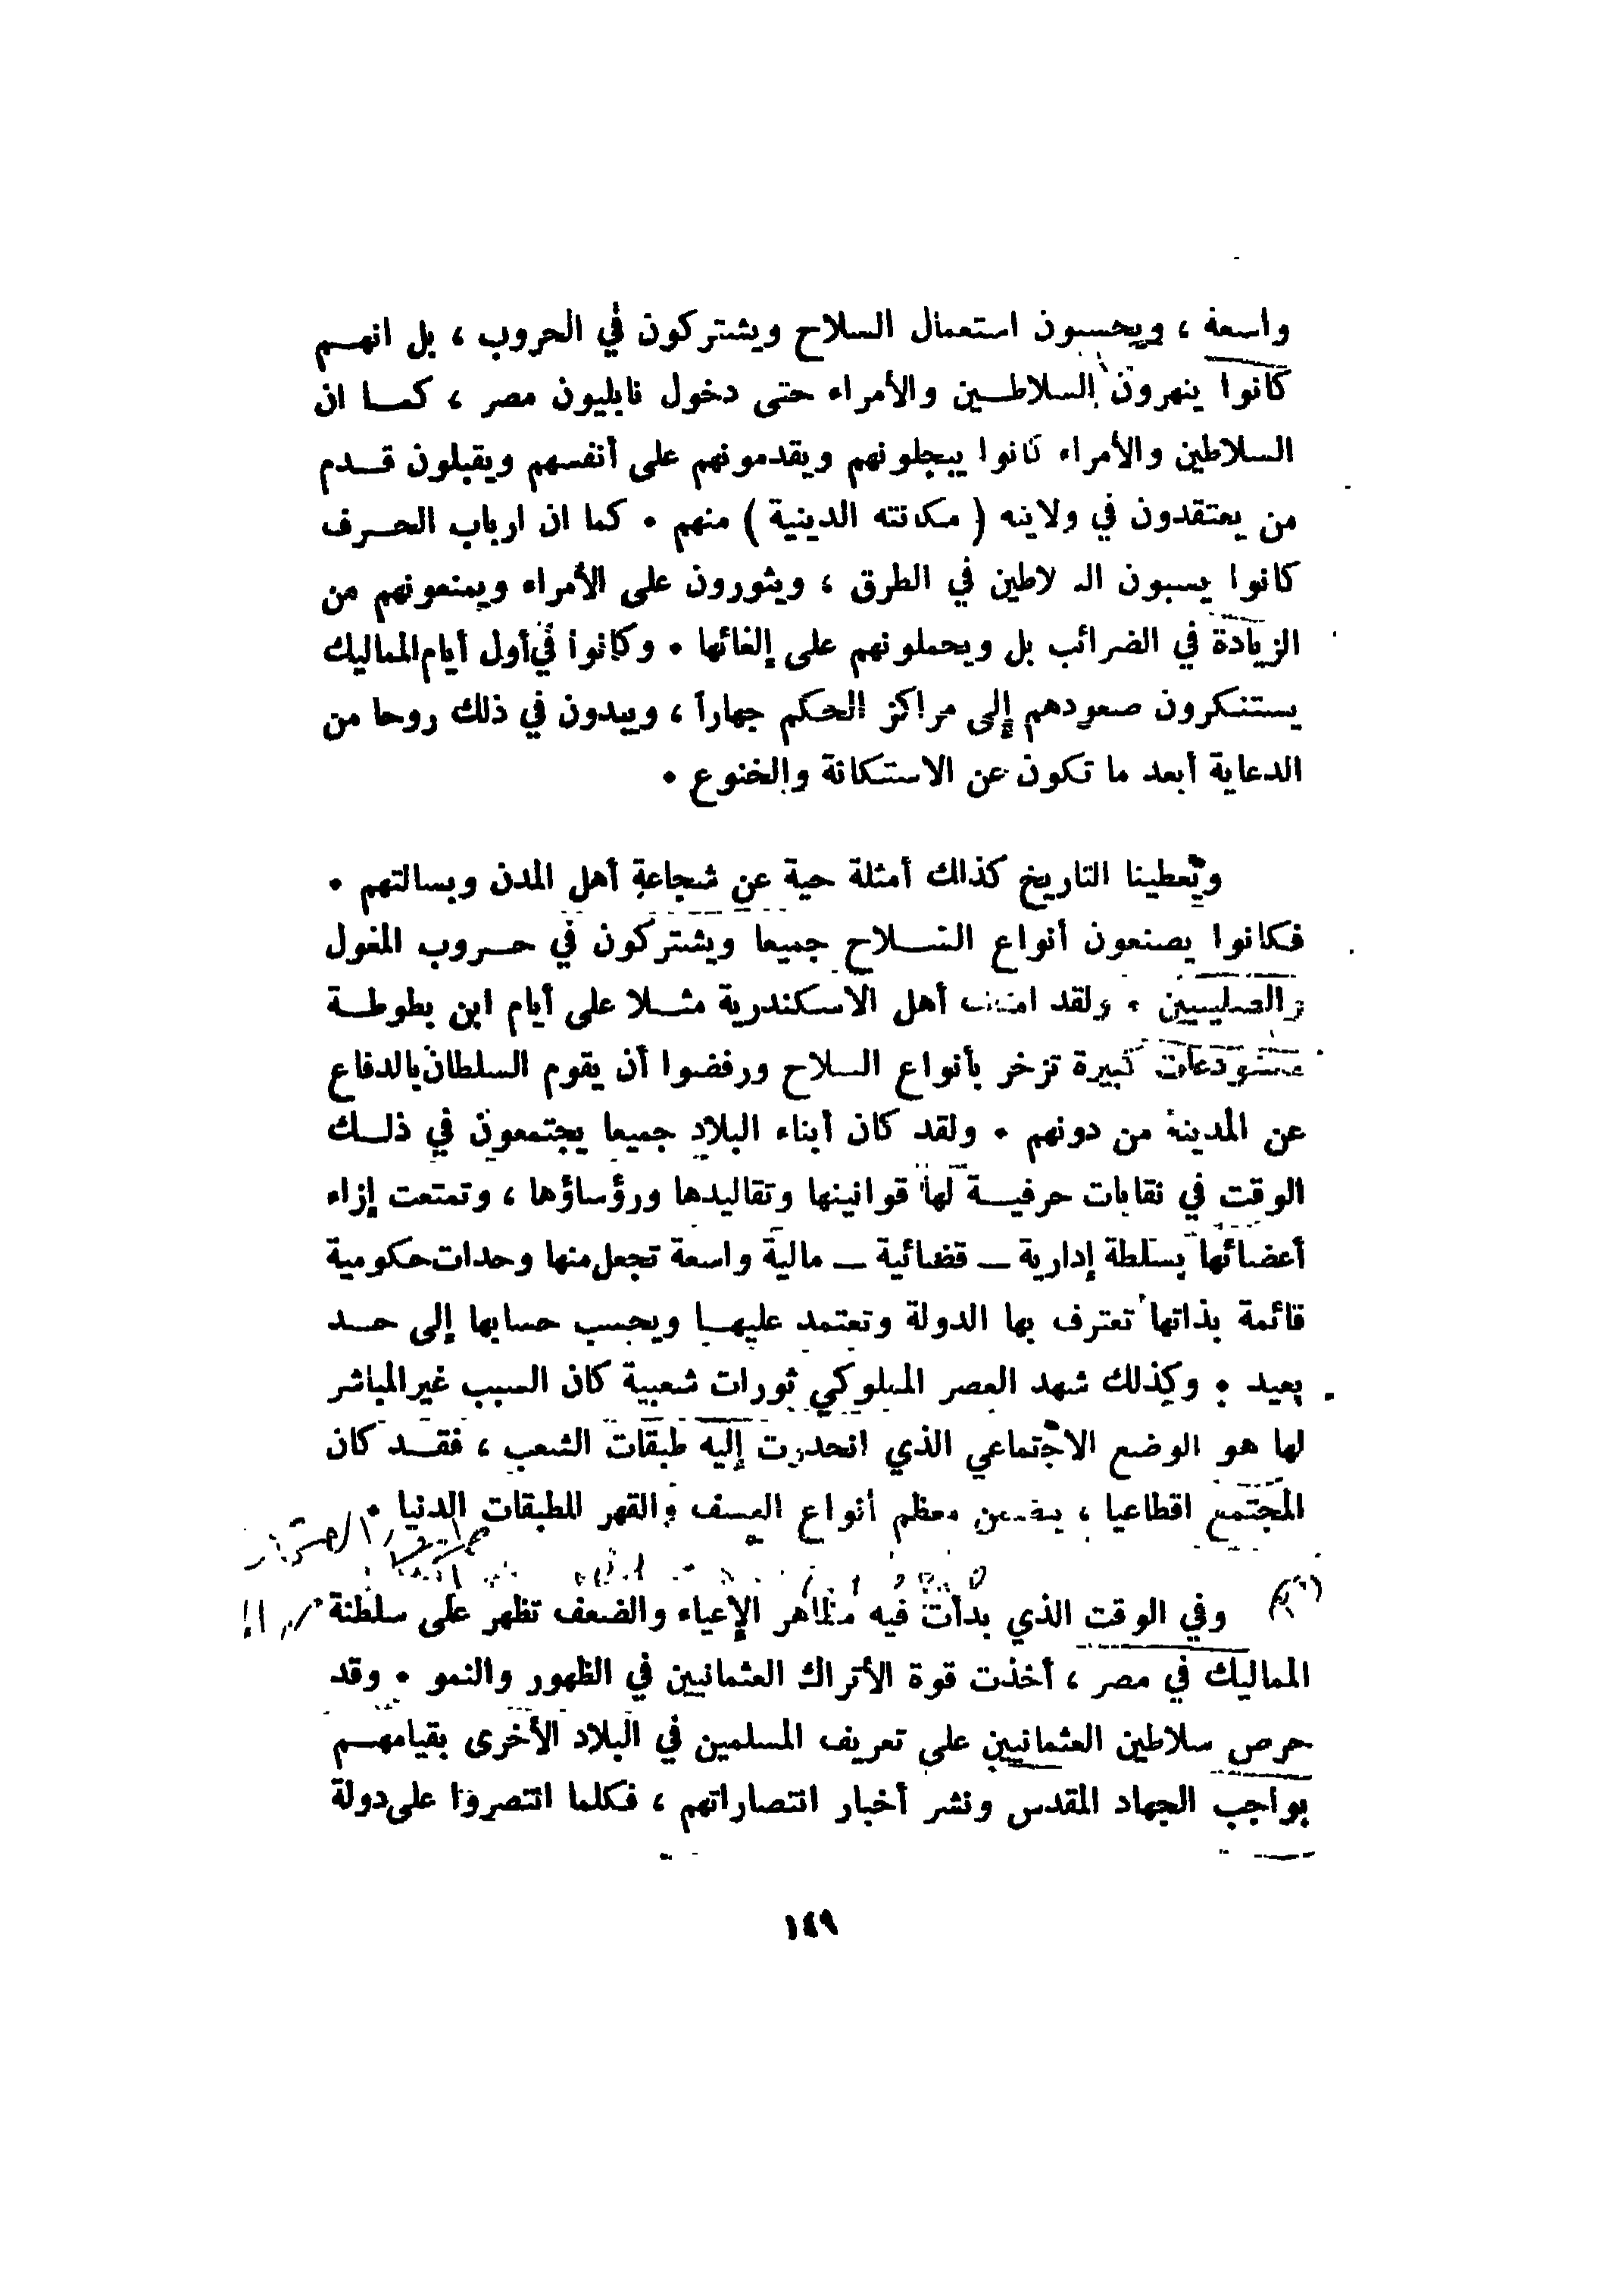 واسعة ، ويحسنون استعمال السلاح ويشتركون في الحروب ، بل انهم
كانوا ينهرون السلاطين والأمراء حتى دخول نابليون مصر ، كما ان
السلاطين والأمراء كانوا يبجلونهم ويقدمونهم على أنفسهم ويقبلون قدم
من يعتقدون في ولايته ( مكانته الدينية ) منهم . كما ان ارباب الحرف
كانوا يسبون السلاطين في الطرق ، ويثورون على الأمراء ويمنعونهم من
الزيادة في الضرائب بل ويحملونهم على إلغائها . وكانوا في أول أيام المماليك
يستنكرون صعودهم إلى مراكز الحكم جهاراً ، ويبدون في ذلك روحا من
الدعاية أبعد ما تكون عن الاستكانة والخنوع .
ويعطينا التاريخ كذلك أمثلة حية عن شجاعة أهل المدن وبسالتهم .
فكانوا يصنعون أنواع السلاح جميعا ويشتركون في حروب المغول
والصليبيين . ولقد أهل الاسكندرية مثلا على أيام ابن بطوطة
مستودعات كبيرة تزخر بأنواع السلاح ورفضوا أن يقوم السلطان بالدفاع
عن المدينة من دونهم . ولقد كان أبناء البلاد جميعا يجتمعون في ذلك
الوقت في نقابات حرفية لها قوانينها وتقاليدها ورؤساؤها ، وتمتعت إزاء
أعضائها بسلطة إدارية – قضائية – مالية واسعة تجعل منها وحدات حكومية
قائمة بذاتها تعترف بها الدولة وتعتمد عليها ويحسب حسابها إلى حد
بعيد . وكذلك شهد العصر المملوكي ثورات شعبية كان السبب غير المباشر
لها هو الوضع الاجتماعي الذي انحدرت إليه طبقات الشعب ، فقد كان
المجتمع اقطاعيا ، يتضمن معظم أنواع العسف والقهر للطبقات الدنيا .
وفي الوقت الذي بدأت فيه مظاهر الإعياء والضعف تظهر على سلطنة
المماليك في مصر ، أخذت قوة الأتراك العثمانيين في الظهور والنمو . وقد
حرص سلاطين العثمانيين على تعريف المسلمين في البلاد الأخرى بقيامهم
بواجب الجهاد المقدس ونشر أخبار انتصاراتهم ، فكلما انتصروا على دولة
١٤٩